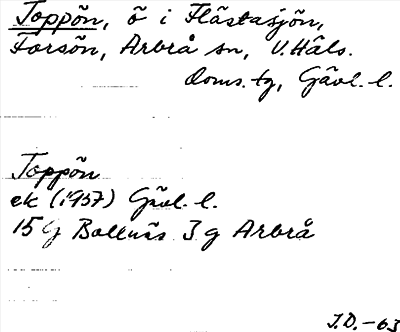 Toppön, ö i Flästasjön,
Forsön, Arbrå sn, V. Häls.
doms. tg, Gävl. l.
Toppön
ek (1957) Gävl. l.
15 G Bollnäs 3 g Arbrå
J.D. -63